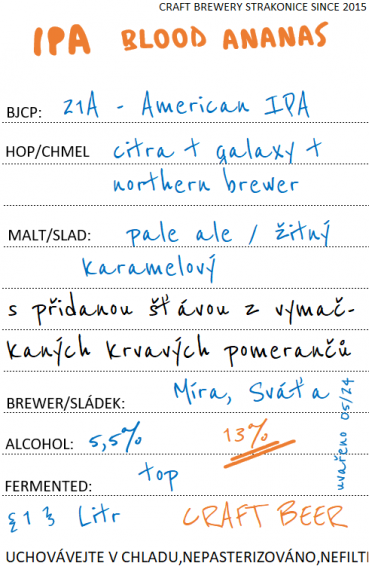 CRAFT BREWERY STRAKONICE SINCE 2015
IPA BLOOD ANANAS
BJCP: 21A - American IPA
HOP/CHMEL citra + galaxy +
northern brewer
MALT/SLAD: pale ale / žitný
karamelový
s přidanou šťávou z vymač-
kaných krvavých pomerančů
BREWER/SLÁDEK: Míra, Sváťa
ALCOHOL: 5,5% 13%
uvařeno 05/24
FERMENTED: top
1 Litr CRAFT BEER
UCHOVÁVEJTE V CHLADU,NEPASTERIZOVÁNO,NEFILT